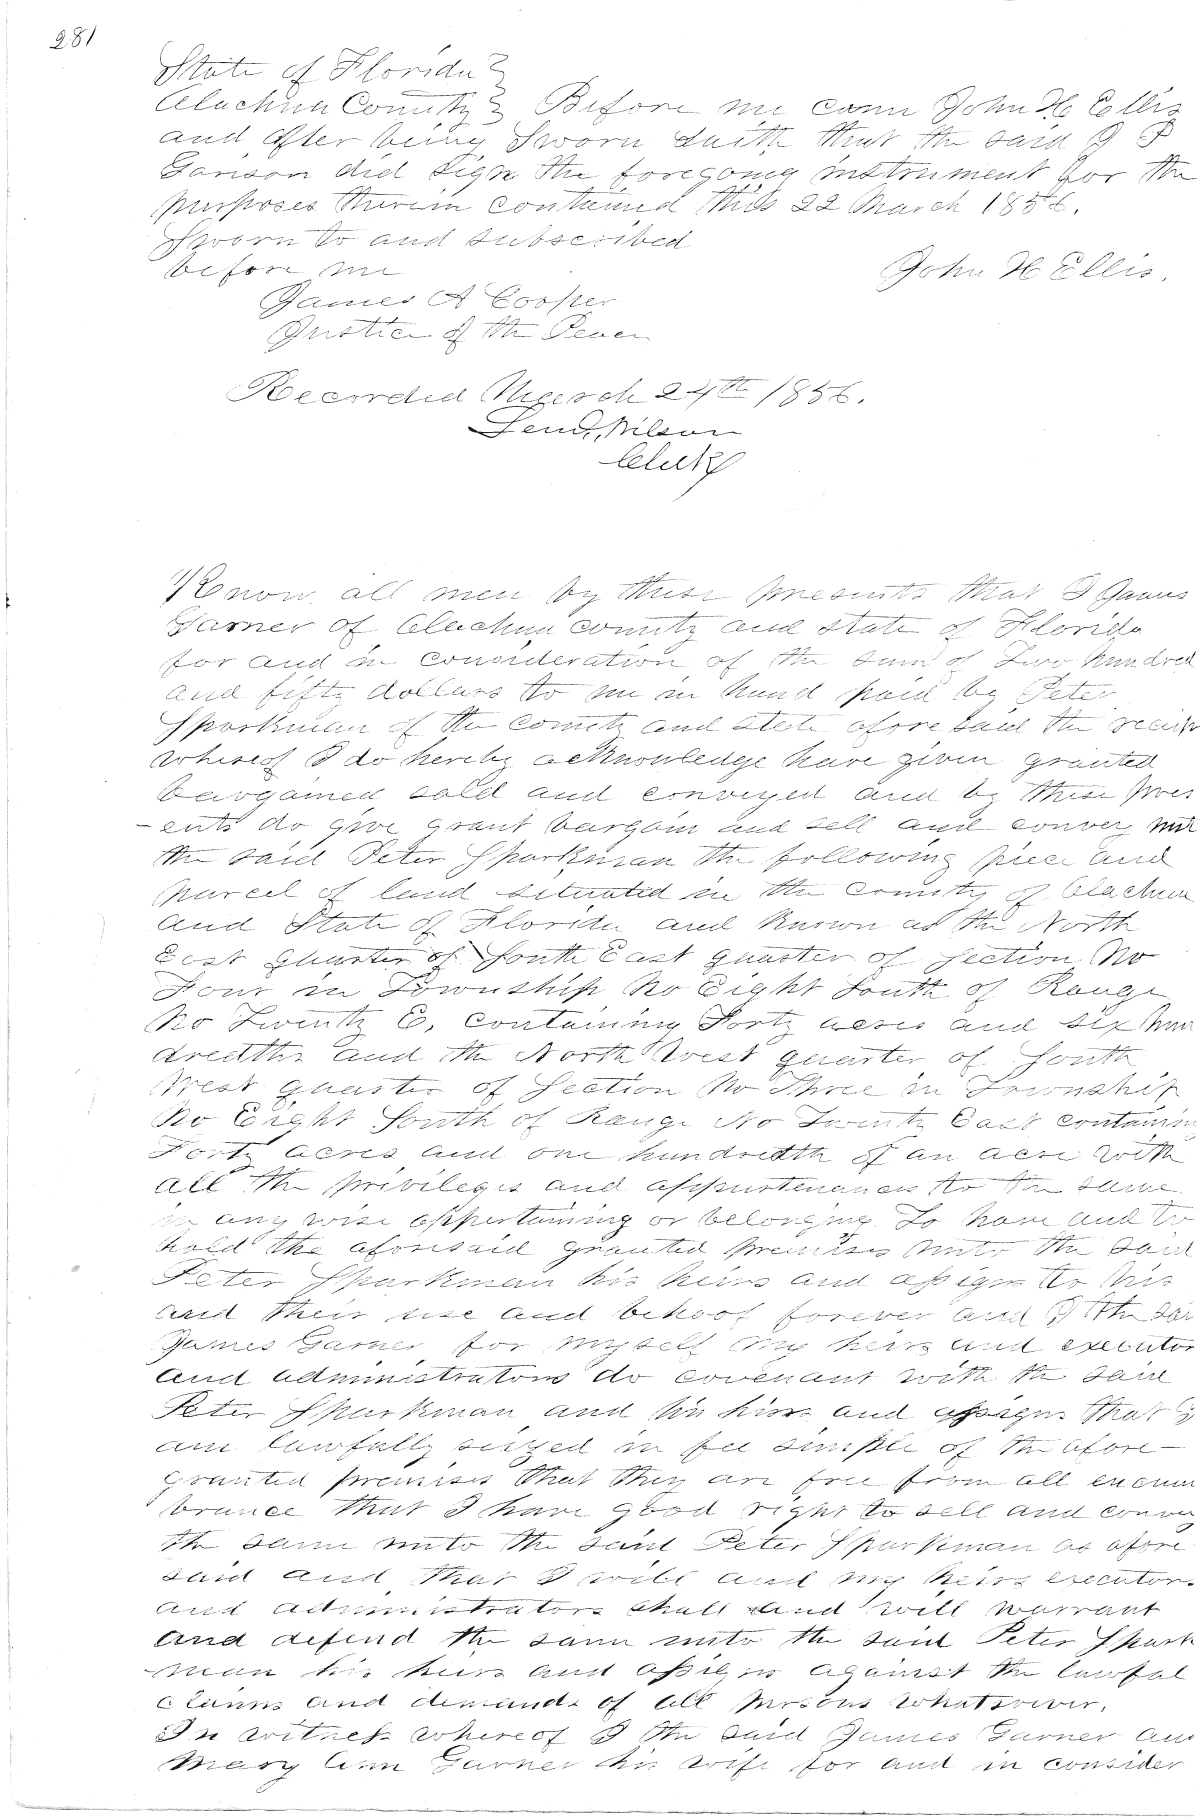 281
State of Florida }
Alachua County } Before me came John H Ellis
and after being Sworn saith that the said J P
Garison did sign the foregoing instrument for the
purposes therein contained this 22 March 1856.
Sworn to and subscribed
before me
John H Ellis.
James A Cooper
Justice of the Peace
Recorded March 24th 1856.
Wilson
Clerk
Know all men by these presents that I James
Garner of Alachua county and state of Florida
for and in consideration of the sum of Two hundred
and fifty dollars to me in hand paid by Peter
Sparkman of the county and state afore said the receip
whereof I do hereby acknowledge have given granted
bargained sold and conveyed and by these pres
-ents do give grant bargain and sell and convey unt
the said Peter Sparkman the following piece and
parcel of land situated in the county of Alachua
and State of Florida and known as the North
East quarter of South East quarter of Section No
Four in Township No Eight South of Range
No Twenty E. containing Forty acres and six hun
dredths and the North West quarter of South
West quarter of Section No Three in Township
No Eight South of Range No Twenty East containing
Forty acres and one hundredth of an acre with
all the privileges and appurtenances to the same
in any wise appertaining or belonging. To have and to
hold the aforesaid granted premises unto the said
Peter Sparkman his heirs and assigns to his
and their use and behoof forever and I the sai
James Garner for myself my heirs and executor
and administrators do covenant with the said
Peter Sparkman and his heirs and assigns that I
am lawfully seized in fee simple of the afore-
granted premises that they are free from all encum
brance that I have good right to sell and convey
the same unto the said Peter Sparkman as afore
said and that I will and my heirs executors
and administrators shall and will warrant
and defend the same unto the said Peter Spark
-man his heirs and assigns against the lawful
claims and demands of all persons whatsoever.
In witness whereof I the said James Garner and
Mary Ann Garner his wife for and in consider